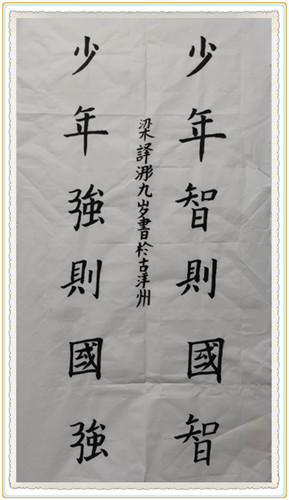 少年智則國智
少年強則國強
梁譯彤九岁書於古洋州